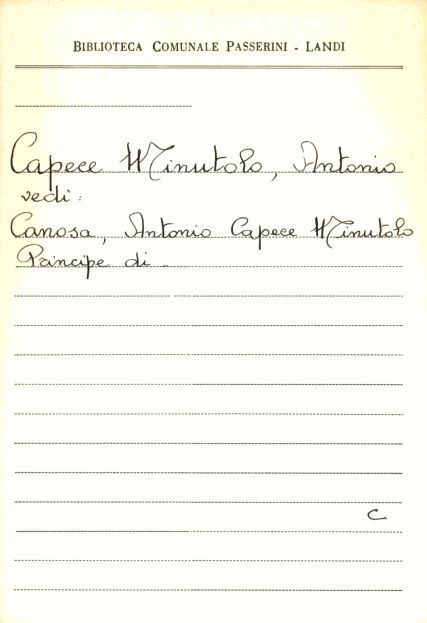 BIBLIOTECA COMUNALE PASSERINI - LANDI
Capece Minutolo, Antonio
vedi:
Canosa, Antonio Capece Minutolo
Principe di -
C